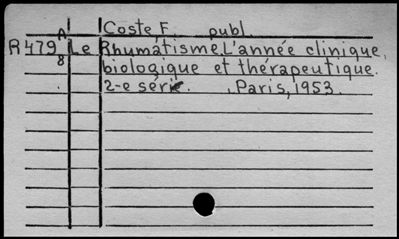 Coste F. publ.
R479 A/8 Le Rhumatisme. L'année clinique,
biologique et thérapeutique.
2-e série. Paris, 1953.